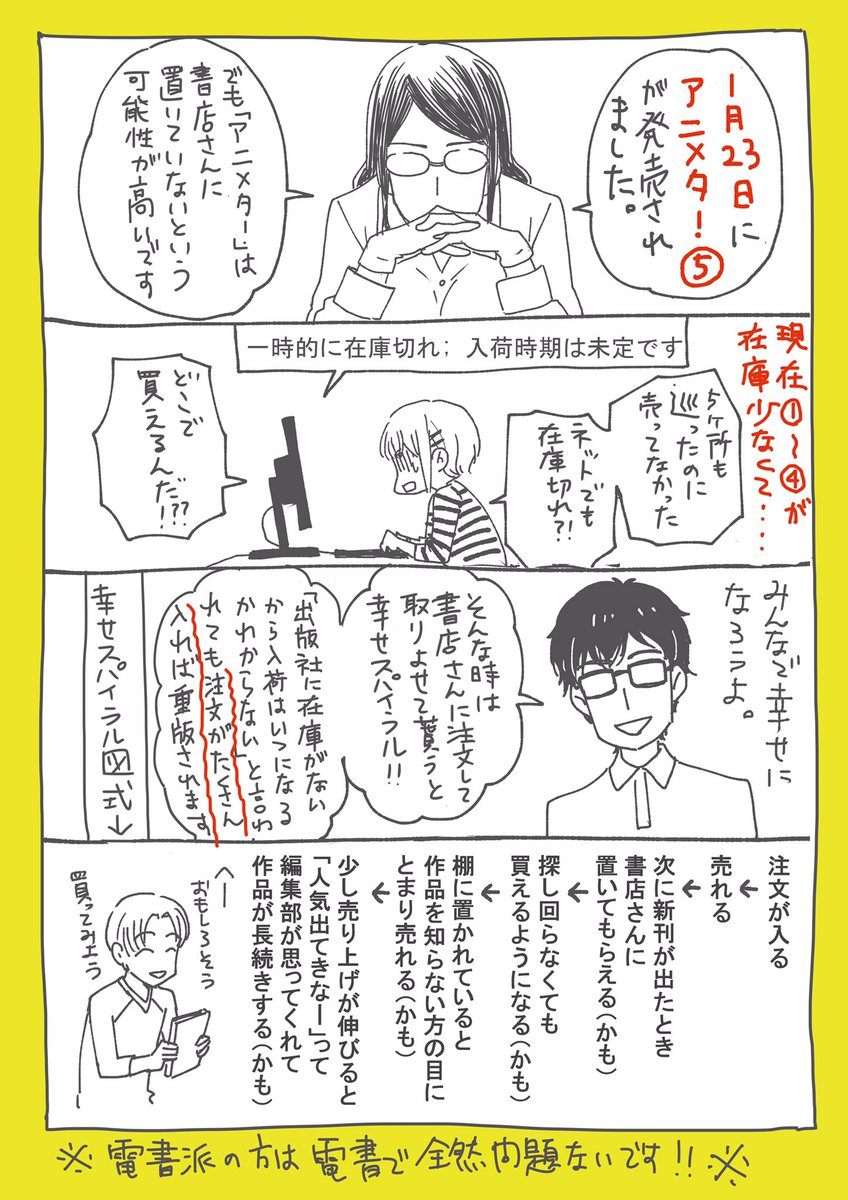 1月23日に
アニメタ!⑤
が発売され
ました。
でも「アニメタ!」は
書店さんに
置いていないという
可能性が高いです
現在①〜④が
在庫少なくて‥‥
5ヶ所も
巡ったのに
売ってなかった
ネットでも
在庫切れ?!
一時的に在庫切れ; 入荷時期は未定です
どこで
買えるんだ!??
みんなで幸せに
なろうよ。
そんな時は
書店さんに注文して
取りよせて貰うと
幸せスパイラル!!
「出版社に在庫がない
から入荷はいつになる
かわからない」と言わ
れても注文がたくさん
入れば重版されます
幸せスパイラル図式↓
注文が入る
↓
売れる
↓
次に新刊が出たとき
書店さんに
置いてもらえる(かも)
↓
探し回らなくても
買えるようになる(かも)
↓
棚に置かれていると
作品を知らない方の目に
とまり売れる(かも)
↓
少し売り上げが伸びると
「人気出てきなー」って
編集部が思ってくれて
作品が長続きする(かも)
へー
おもしろそう
買ってみよう
※電書派の方は電書で全然問題ないです!!※